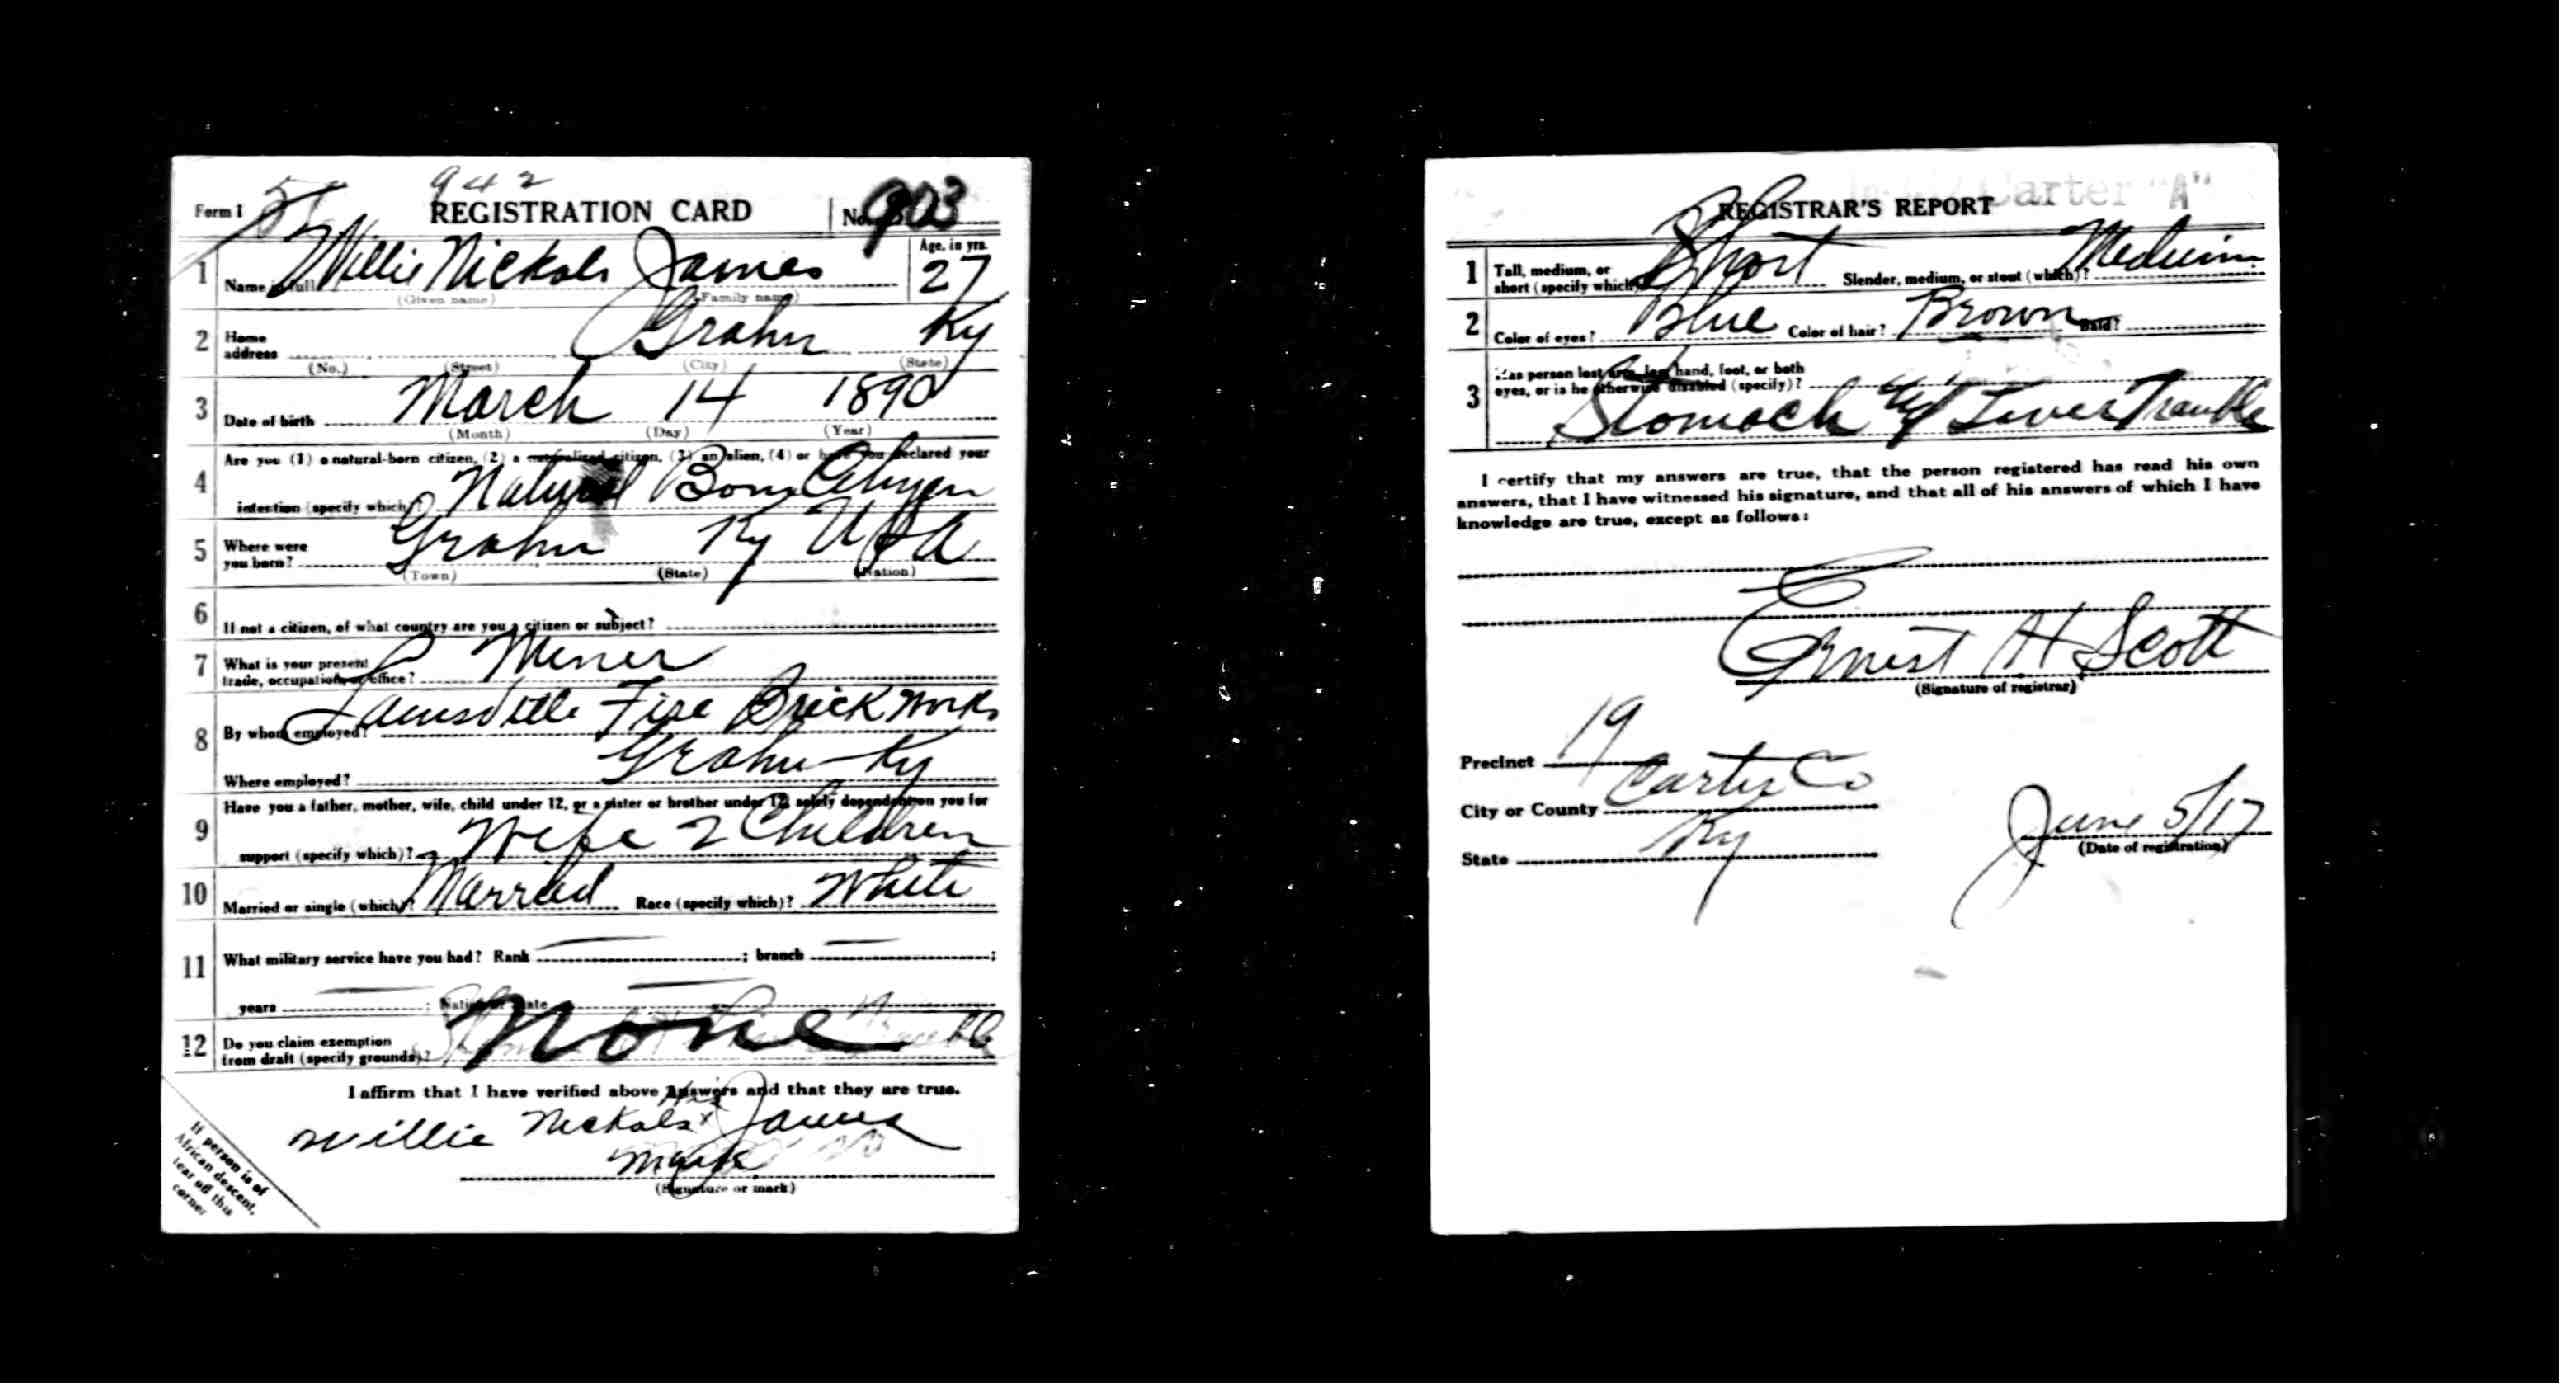 942
Form 1 REGISTRATION CARD No. 903
1 Name in full Willie Nickols James Age, in yrs. 27
(Given name) (Family name)
2 Home address Grahn Ky
(No.) (Street) (City) (State)
3 Date of birth March 14 1890
(Month) (Day) (Year)
4 Are you (1) a natural-born citizen, (2) a naturalized citizen, (3) an alien, (4) or have you declared your
intention (specify which)? Natural Born Citizen
5 Where were you born? Grahn Ky USA
(Town) (State) (Nation)
6 If not a citizen, of what country are you a citizen or subject?
7 What is your present trade, occupation, or office? Miner
8 By whom employed? Louisville Fire Brick Works
Where employed? Grahn Ky
9 Have you a father, mother, wife, child under 12, or a sister or brother under 12, solely dependent on you for
support (specify which)? Wife 2 Children
10 Married or single (which)? Married Race (specify which)? White
11 What military service have you had? Rank ; branch ;
years ; Nation or State
12 Do you claim exemption from draft (specify grounds)? None
I affirm that I have verified above answers and that they are true.
His
Willie Nickols x James
Mark
(Signature or mark)
If person is of
African descent,
tear off this
corner
Carter "A"
REGISTRAR'S REPORT
1 Tall, medium, or short (specify which)? Short Slender, medium, or stout (which)? Medium
2 Color of eyes? Blue Color of hair? Brown Bald?
3 Has person lost arm, leg, hand, foot, or both
eyes, or is he otherwise disabled (specify)?
Stomach Liver Trouble
I certify that my answers are true, that the person registered has read his own
answers, that I have witnessed his signature, and that all of his answers of which I have
knowledge are true, except as follows:
Ernest H Scott
(Signature of registrar)
Precinct 19
City or County Carter Co
State Ky
June 5/17
(Date of registration)